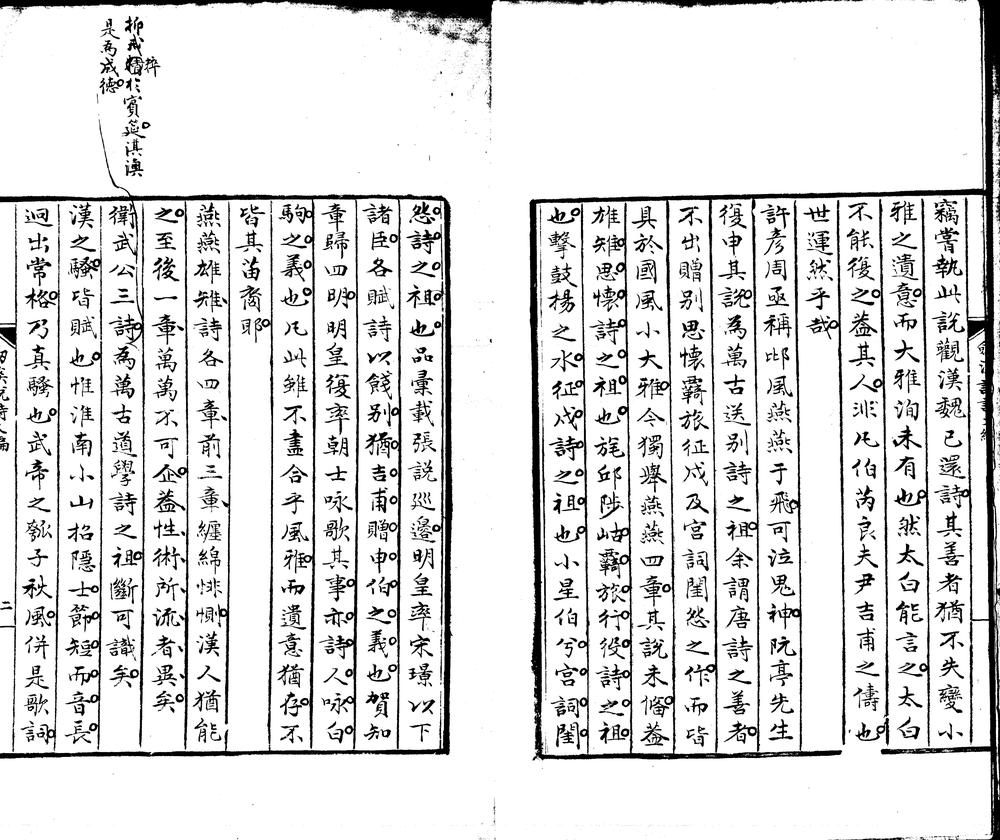 竊嘗執此說觀漢魏已還詩其善者猶不失變小
雅之遺意而大雅洵未有也然太白能言之太白
不能復之葢其人非凡伯芮良夫尹吉甫之儔也
世運然乎哉
許彥周亟稱邶風燕燕于飛可泣鬼神阮亭先生
復申其說為萬古送別詩之祖余謂唐詩之善者
不出贈別思懷羇旅征戍及宮詞閨怨之作而皆
具於國風小大雅今獨舉燕燕四章其說未備葢
雄雉思懷詩之祖也旄邱陟岵羇旅行役詩之祖
也擊鼓揚之水征戍詩之祖也小星伯兮宮詞閨
怨詩之祖也品彙載張說巡邊明皇率宋璟以下
諸臣各賦詩以餞別猶吉甫贈申伯之義也賀知
章歸四明明皇復率朝士咏歌其事亦詩人咏白
駒之義也凡此雖不盡合乎風雅而遺意猶存不
皆其苗裔耶
燕燕雄雉詩各四章前三章纏綿悱惻漢人猶能
之至後一章萬萬不可企葢性術所流者異矣
衛武公三詩為萬古道學詩之祖斷可識矣
漢之騷皆賦也惟淮南小山招隱士節短而音長
迥出常格乃真騷也武帝之瓠子秋風併是歌詞
抑戒
粹
於賓筵淇澳
是為成德
二